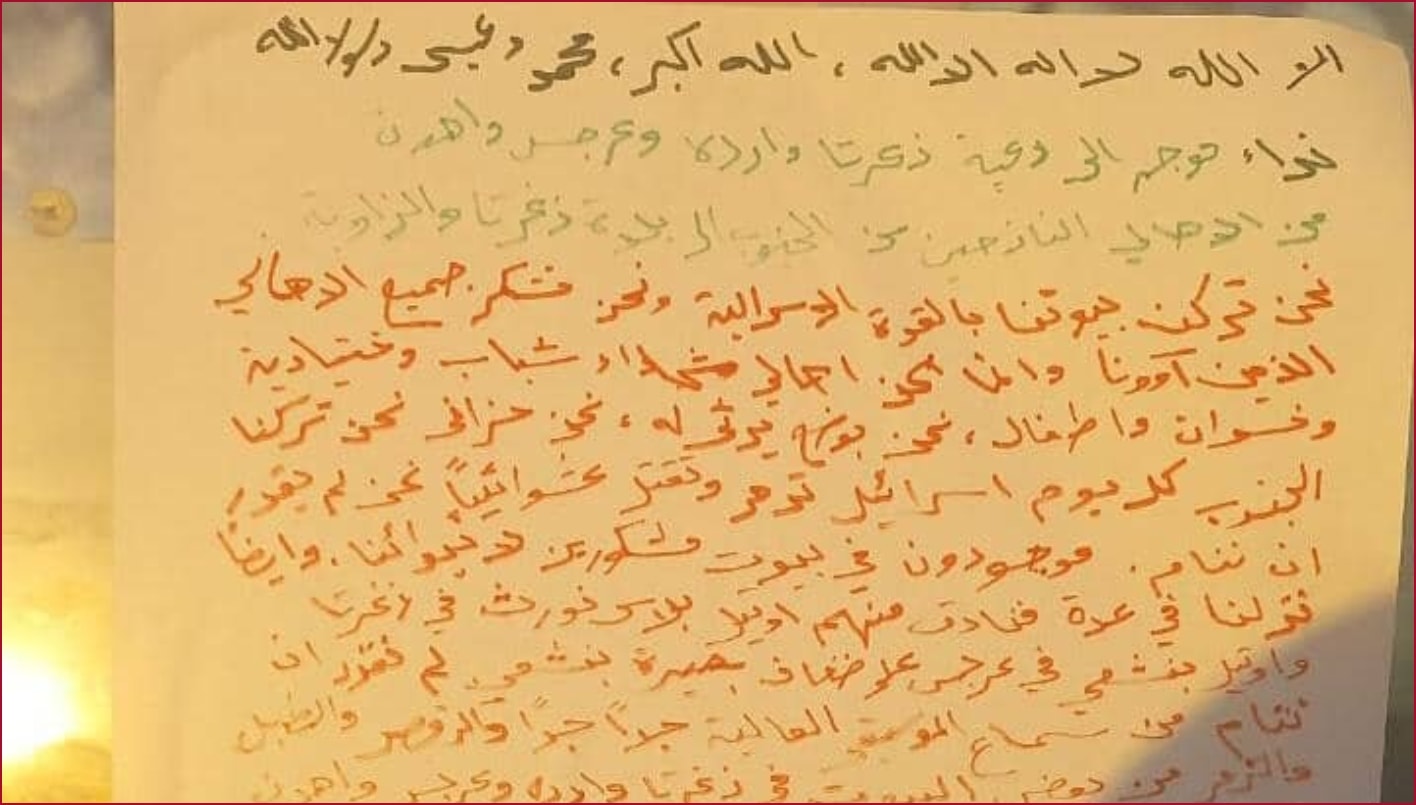 الا الله لا اله الا الله، الله اكبر، محمد وعيسى
نداء موجه الى رعية زغرتا وارده وعرجس واهدن
من الاهالي النازحين من الجنوب الى بلدة زغرتا والزاوية
نحن تركن بيوتنا بالقوة الاسرالية ونحن نشكر جميع الاهالي
الذين آوونا وانما نحن اهالي شهداء شباب وختيارية
ونسوان واطفال، نحن بوضع يرثى له، نحن حزانى نحن تركنا
الجنوب كل يوم اسرائيل تدمر وتقتل عشوائيًا نحن لم نقدر
ان ننام. موجودون في بيوت مشكورين لايوائنا. وايضًا
نزلنا في عدة فنادق منهم اوتيل بلاس نورث في زغرتا
واوتيل بنشعي في عرجس على ضفاف بحيرة بنشعي. لم نقدر ان
ننام من سماع الموسيقى العالية جدًا جدًا والرقص والطبل
والزمر من بعض البيوت في زغرتا وارده وعرجس واهدن